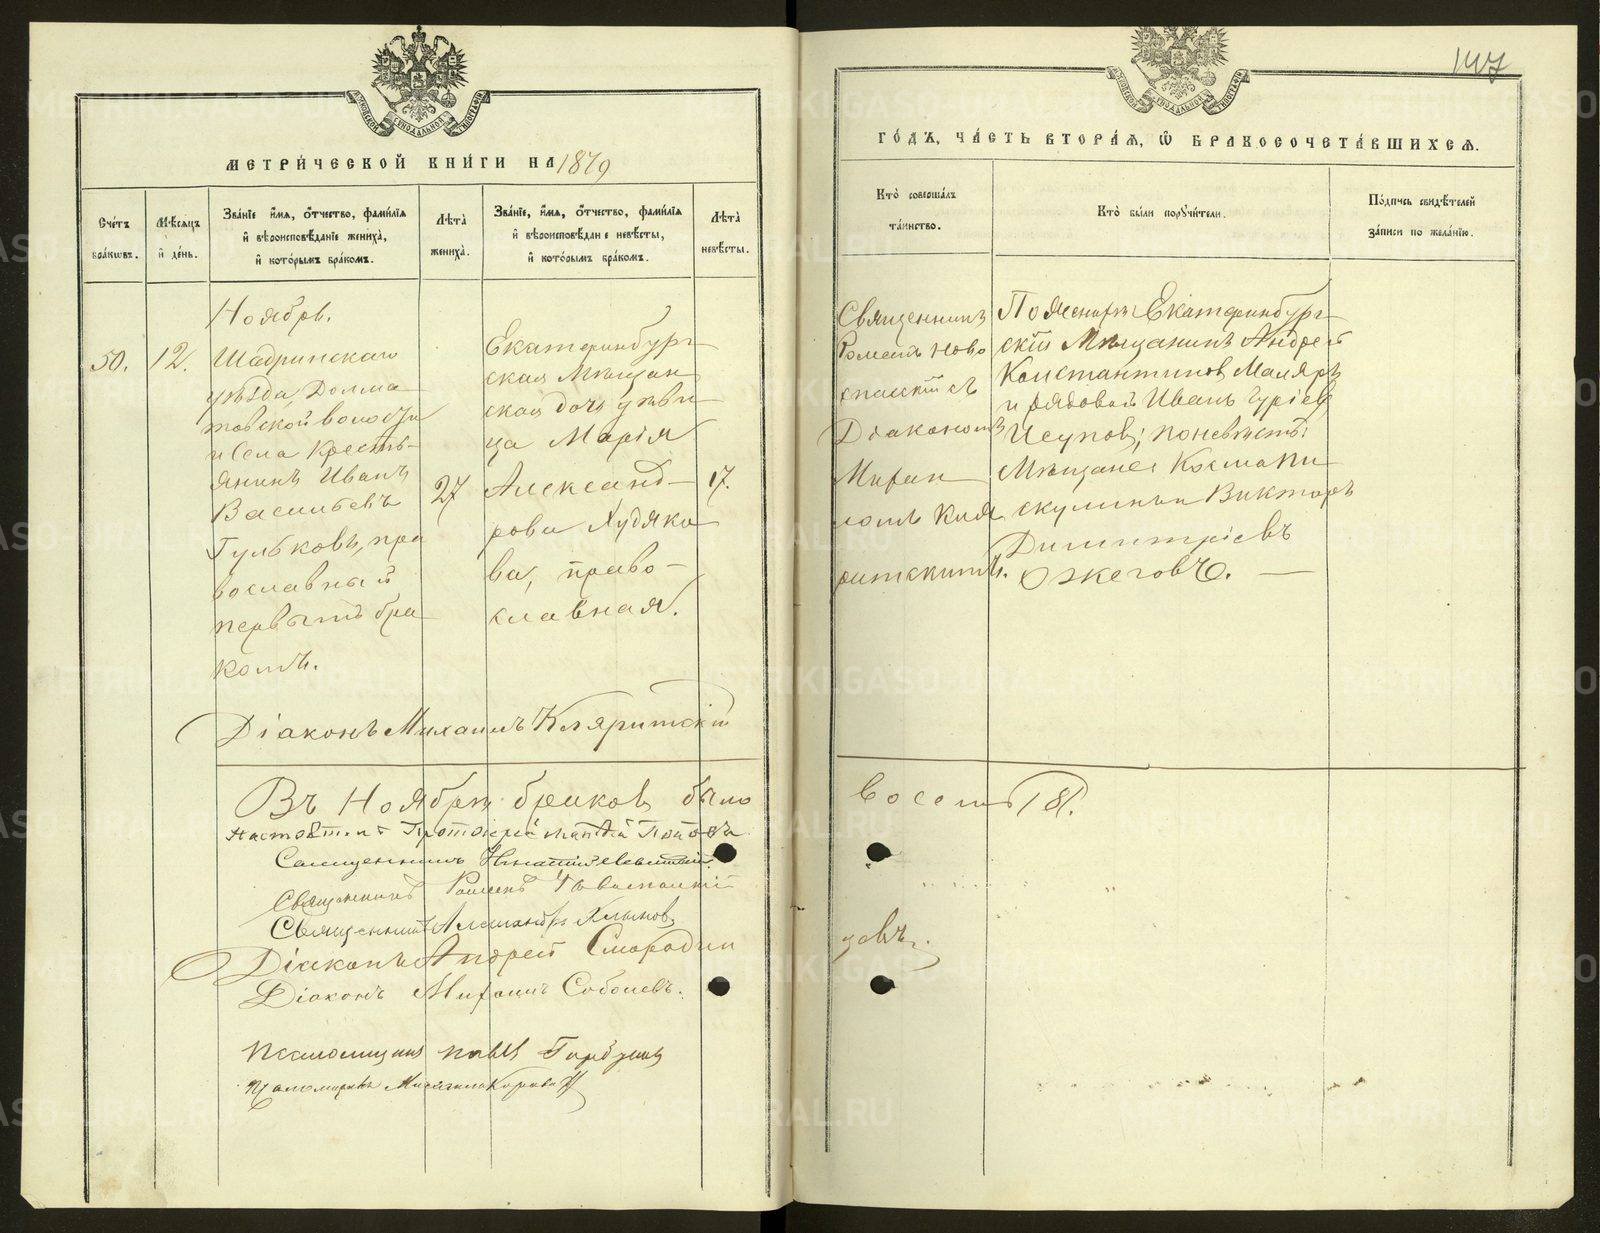 МЕТРИ́ЧЕСКОЙ КНИ́ГИ НА 1879
Сче́тъ бра́кѡвъ.
Мѣ́сяцъ и҆ де́нь.
Зва́нїе и҆́мѧ, ѻ҆́тчество, фами́лїѧ и҆ вѣроисповѣ́данїе жениха̀, и҆ кото́рымъ бра́комъ.
Лѣта̀ жениха̀.
Зва́нїе, и҆́мѧ, ѻ҆́тчество, фами́лїѧ и҆ вѣроисповѣ́дан е невѣ́сты, и҆ кото́рымъ бра́комъ.
Лѣта̀ невѣ́сты.
Ноябрь.
50.
12.
Шадринскаго
уѣзда, Долма
товской волости
и села Кресть-
янинъ Иванъ
Васильевъ
Гульковъ, пра
вославный
первымъ бра
комъ.
27
Екатеринбург
ская Мѣщан
ская дочь дѣви
ца Марія
Александ-
рова Худяко
ва, право-
славная.
17.
Діаконъ Михаилъ Кляритскій
Въ Ноябрѣ браков было
Протоіерей Попов
Священникъ Игнатій
Священникъ Романъ Новоспасскій
Священникъ Александръ Хлыновъ
Діаконъ Андрей Смородин
Діаконъ Михаилъ Соболевъ.
Псаломщикъ
Псаломщикъ
147
ГО́ДЪ, ЧА́СТЬ ВТОРА́Ѧ, Ѡ҆ БРАКОСОЧЕТА́ВШИХСѦ.
Кто̀ соверша́лъ та́инство.
Кто̀ бы́ли порꙋчи́тели.
По́дпись свидѣ́телей за́писи по жела́нїю.
Священникъ
Романъ Ново
спасскій съ
Діакономъ
Михаи
ломъ Кля
ритскимъ.
По женихѣ Екатеринбург
скій Мѣщанинъ Андрей
Константинов Маляръ
и рядовой Иванъ Гуріевъ
Исупов; по невѣстѣ:
Мѣщане: Косма Пи
скулинъ и Викторъ
Димитріевъ
Ожеговъ. —
восемь /8/.